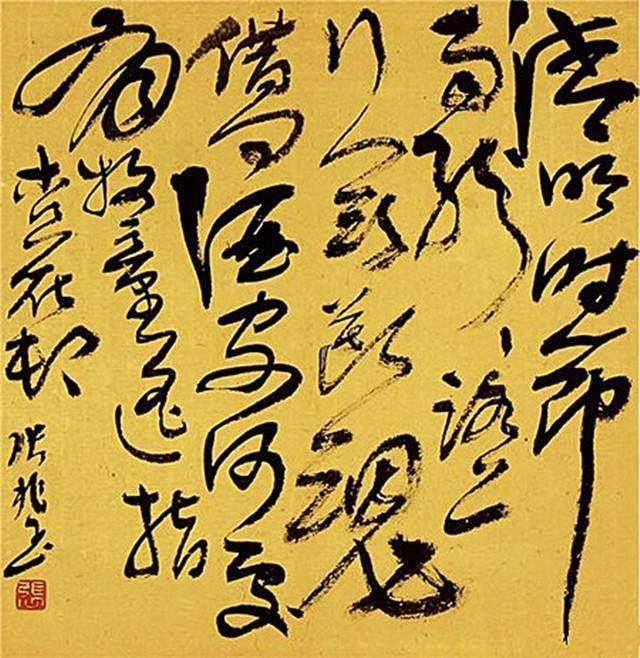 清明时节
雨纷纷路上
行人欲断魂
借问酒家何处
有牧童遥指
杏花村
张
張